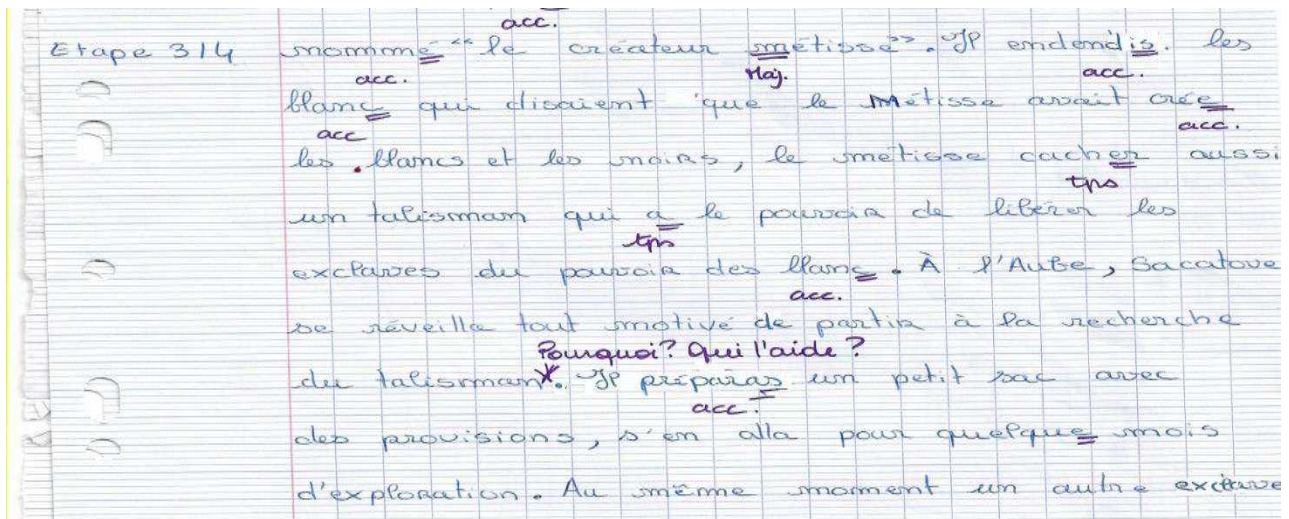 acc.
Etape 3/4 nommé "le créateur métisse". Il endendis. les
acc. Maj. acc.
blanc qui disaient que le Métisse avait crée
acc acc.
les blancs et les noirs, le métisse cacher aussi
tps
un talisman qui a le pouvoir de libérer les
tps
exclaves du pouvoir des blanc. À l'Aube, Sacatove
acc.
se réveilla tout motivé de partir à la recherche
Pourquoi? Qui l'aide?
du talisman*. Il préparas un petit sac avec
acc.
des provisions, s'en alla pour quelque mois
d'exploration. Au même moment un autre exclave